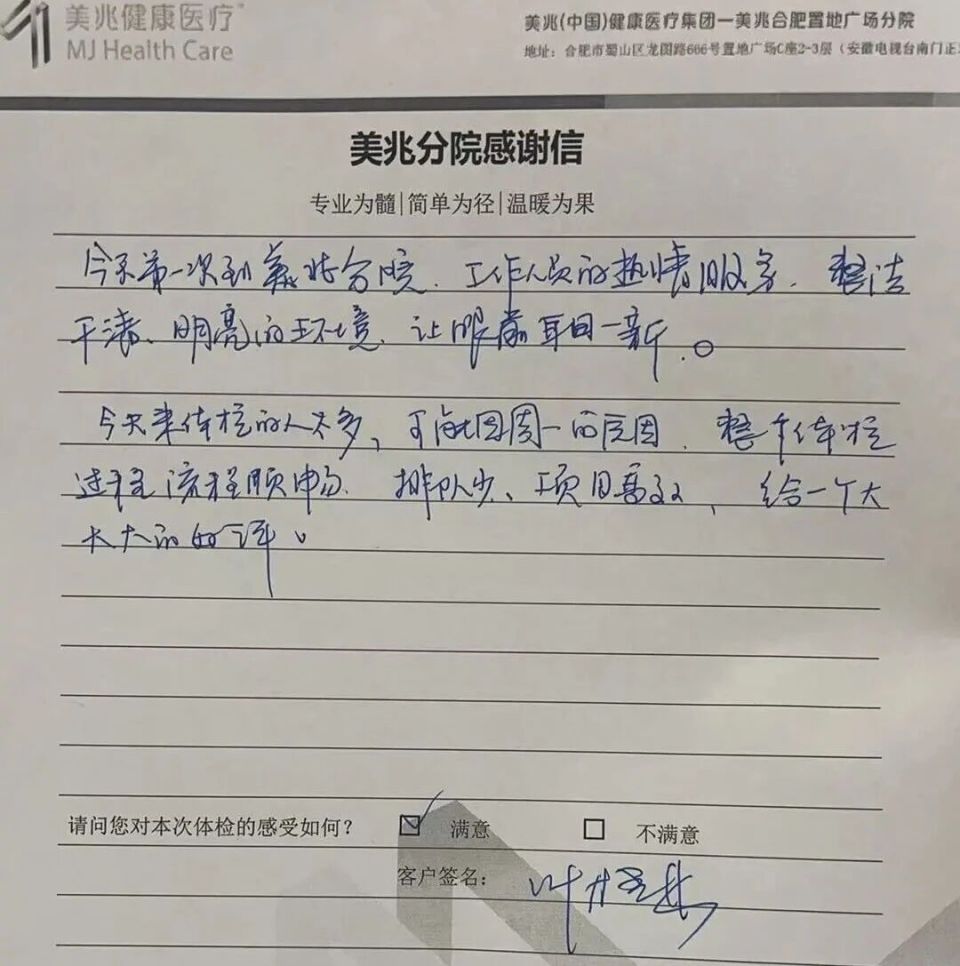 美兆健康医疗
MJ Health Care
美兆(中国)健康医疗集团—美兆合肥置地广场分院
地址：合肥市蜀山区龙图路666号置地广场C座2-3层（安徽电视台南门正
美兆分院感谢信
专业为髓|简单为径|温暖为果
今天第一次到美兆分院、工作人员的热情服务、整洁
干净、明亮的环境、让眼前耳目一新。
今天来体检的人太多，可能因周一的原因、整个体检
过程流程顺畅、排队少、项目高效，给一个大
大大的好评。
请问您对本次体检的感受如何？ 满意 不满意
客户签名：